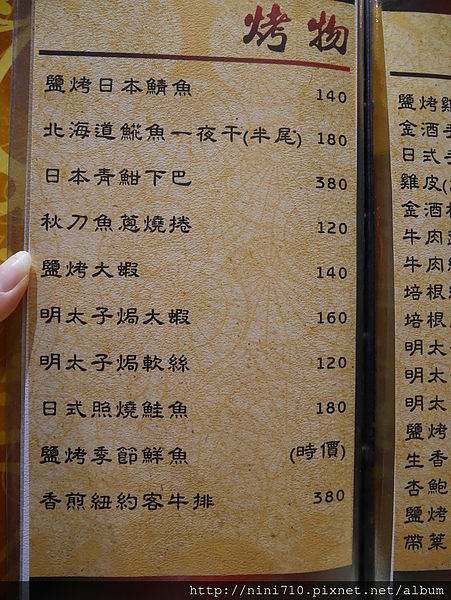 烤物
鹽烤日本鯖魚 140
北海道鯱魚一夜干(半尾) 180
日本青魽下巴 380
秋刀魚蔥燒捲 120
鹽烤大蝦 140
明太子焗大蝦 160
明太子焗軟絲 120
日式照燒鮭魚 180
鹽烤季節鮮魚 (時價)
香煎紐約客牛排 380
鹽烤雞
金酒
日式
雞皮
金酒
牛肉
牛肉
培根
培根
明太
明太
明太
鹽烤
生香
杏鮑
鹽烤
帶葉
http://nini710.pixnet.net/album